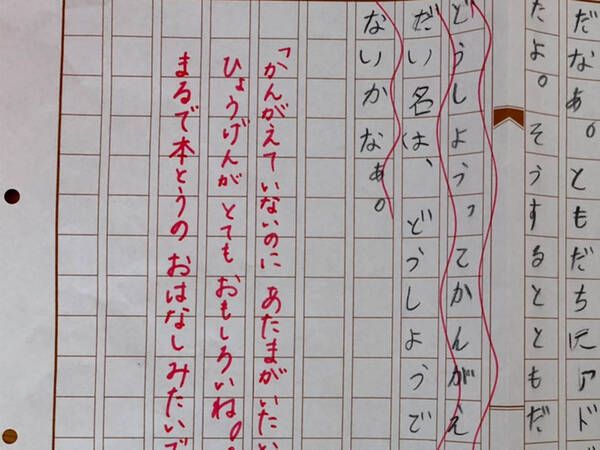 だなぁ。ともだちにアド
たよ。そうするとともだ
どうしよう。ってかんがえ
だい名は、どうしようで
ないかなぁ。
「かんがえていないのに あたまがいたい
ひょうげんが とても おもしろいね。
まるで本とうの おはなしみたいで